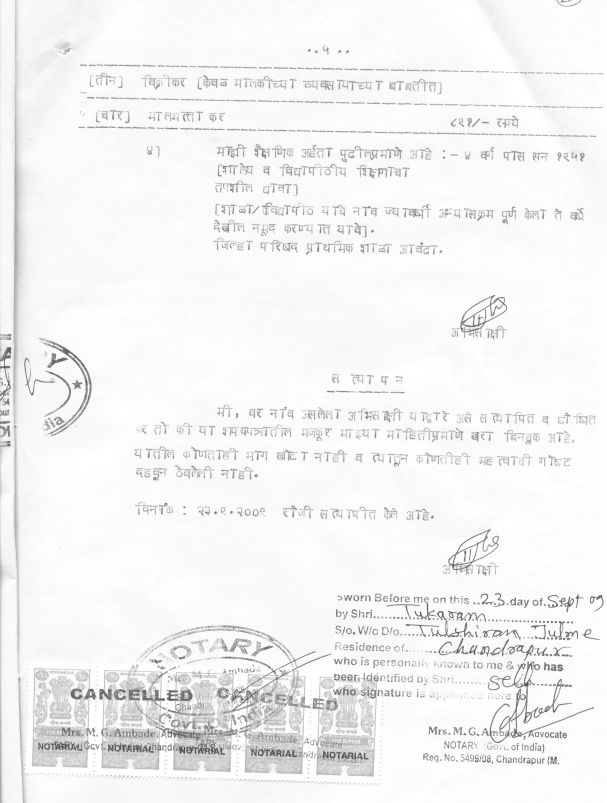 ..५..
[तीन] विक्रीकर [केवळ मालकीच्या व्यवसायाच्या बाबतीत]
[चार] मालमत्ता कर ८९१/- रुपये
४] माझी शैक्षणिक अर्हता पुढीलप्रमाणे आहे :- ४ वर्ग पास सन १९५१
[शालेय व विद्यापीठीय शिक्षणाचा
तपशील द्यावा]
[शाळा/विद्यापीठ याचे नांव ज्यावर्षी अभ्यासक्रम पूर्ण केला ते वर्ष
देखील नमूद करण्यात यावे].
जिल्हा परिषद प्राथमिक शाळा आवंढा.
अभिसाक्षी
सत्यापन
मी, वर नांव असलेला अभिसाक्षी याद्वारे असे सत्यापित व घोषित
करतो की या शपथपत्रातील मजकूर माझ्या माहितीप्रमाणे खरा बिनचूक आहे.
यातील कोणताही भाग खोटा नाही व त्यातून कोणतीही महत्वाची गोष्ट
दडवून ठेवलेली नाही.
दिनांक : २३.९.२००९ रोजी सत्यापीत केले आहे.
अभिसाक्षी
Sworn Before me on this 23 day of Sept 09
by Shri Tukaram
S/o. W/o D/o Tulshiram Julme
Residence of Chandrapur
who is personally known to me & who has
been Identified by Shri self
who signature is appended here to
NOTARY
Govt. of India
CANCELLED CANCELLED
Mrs. M. G. Ambade, Advocate
NOTARIAL NOTARIAL NOTARIAL NOTARIAL NOTARIAL
Mrs. M. G. Ambade, Advocate
NOTARY (Govt. of India)
Reg. No. 5499/08, Chandrapur (M.